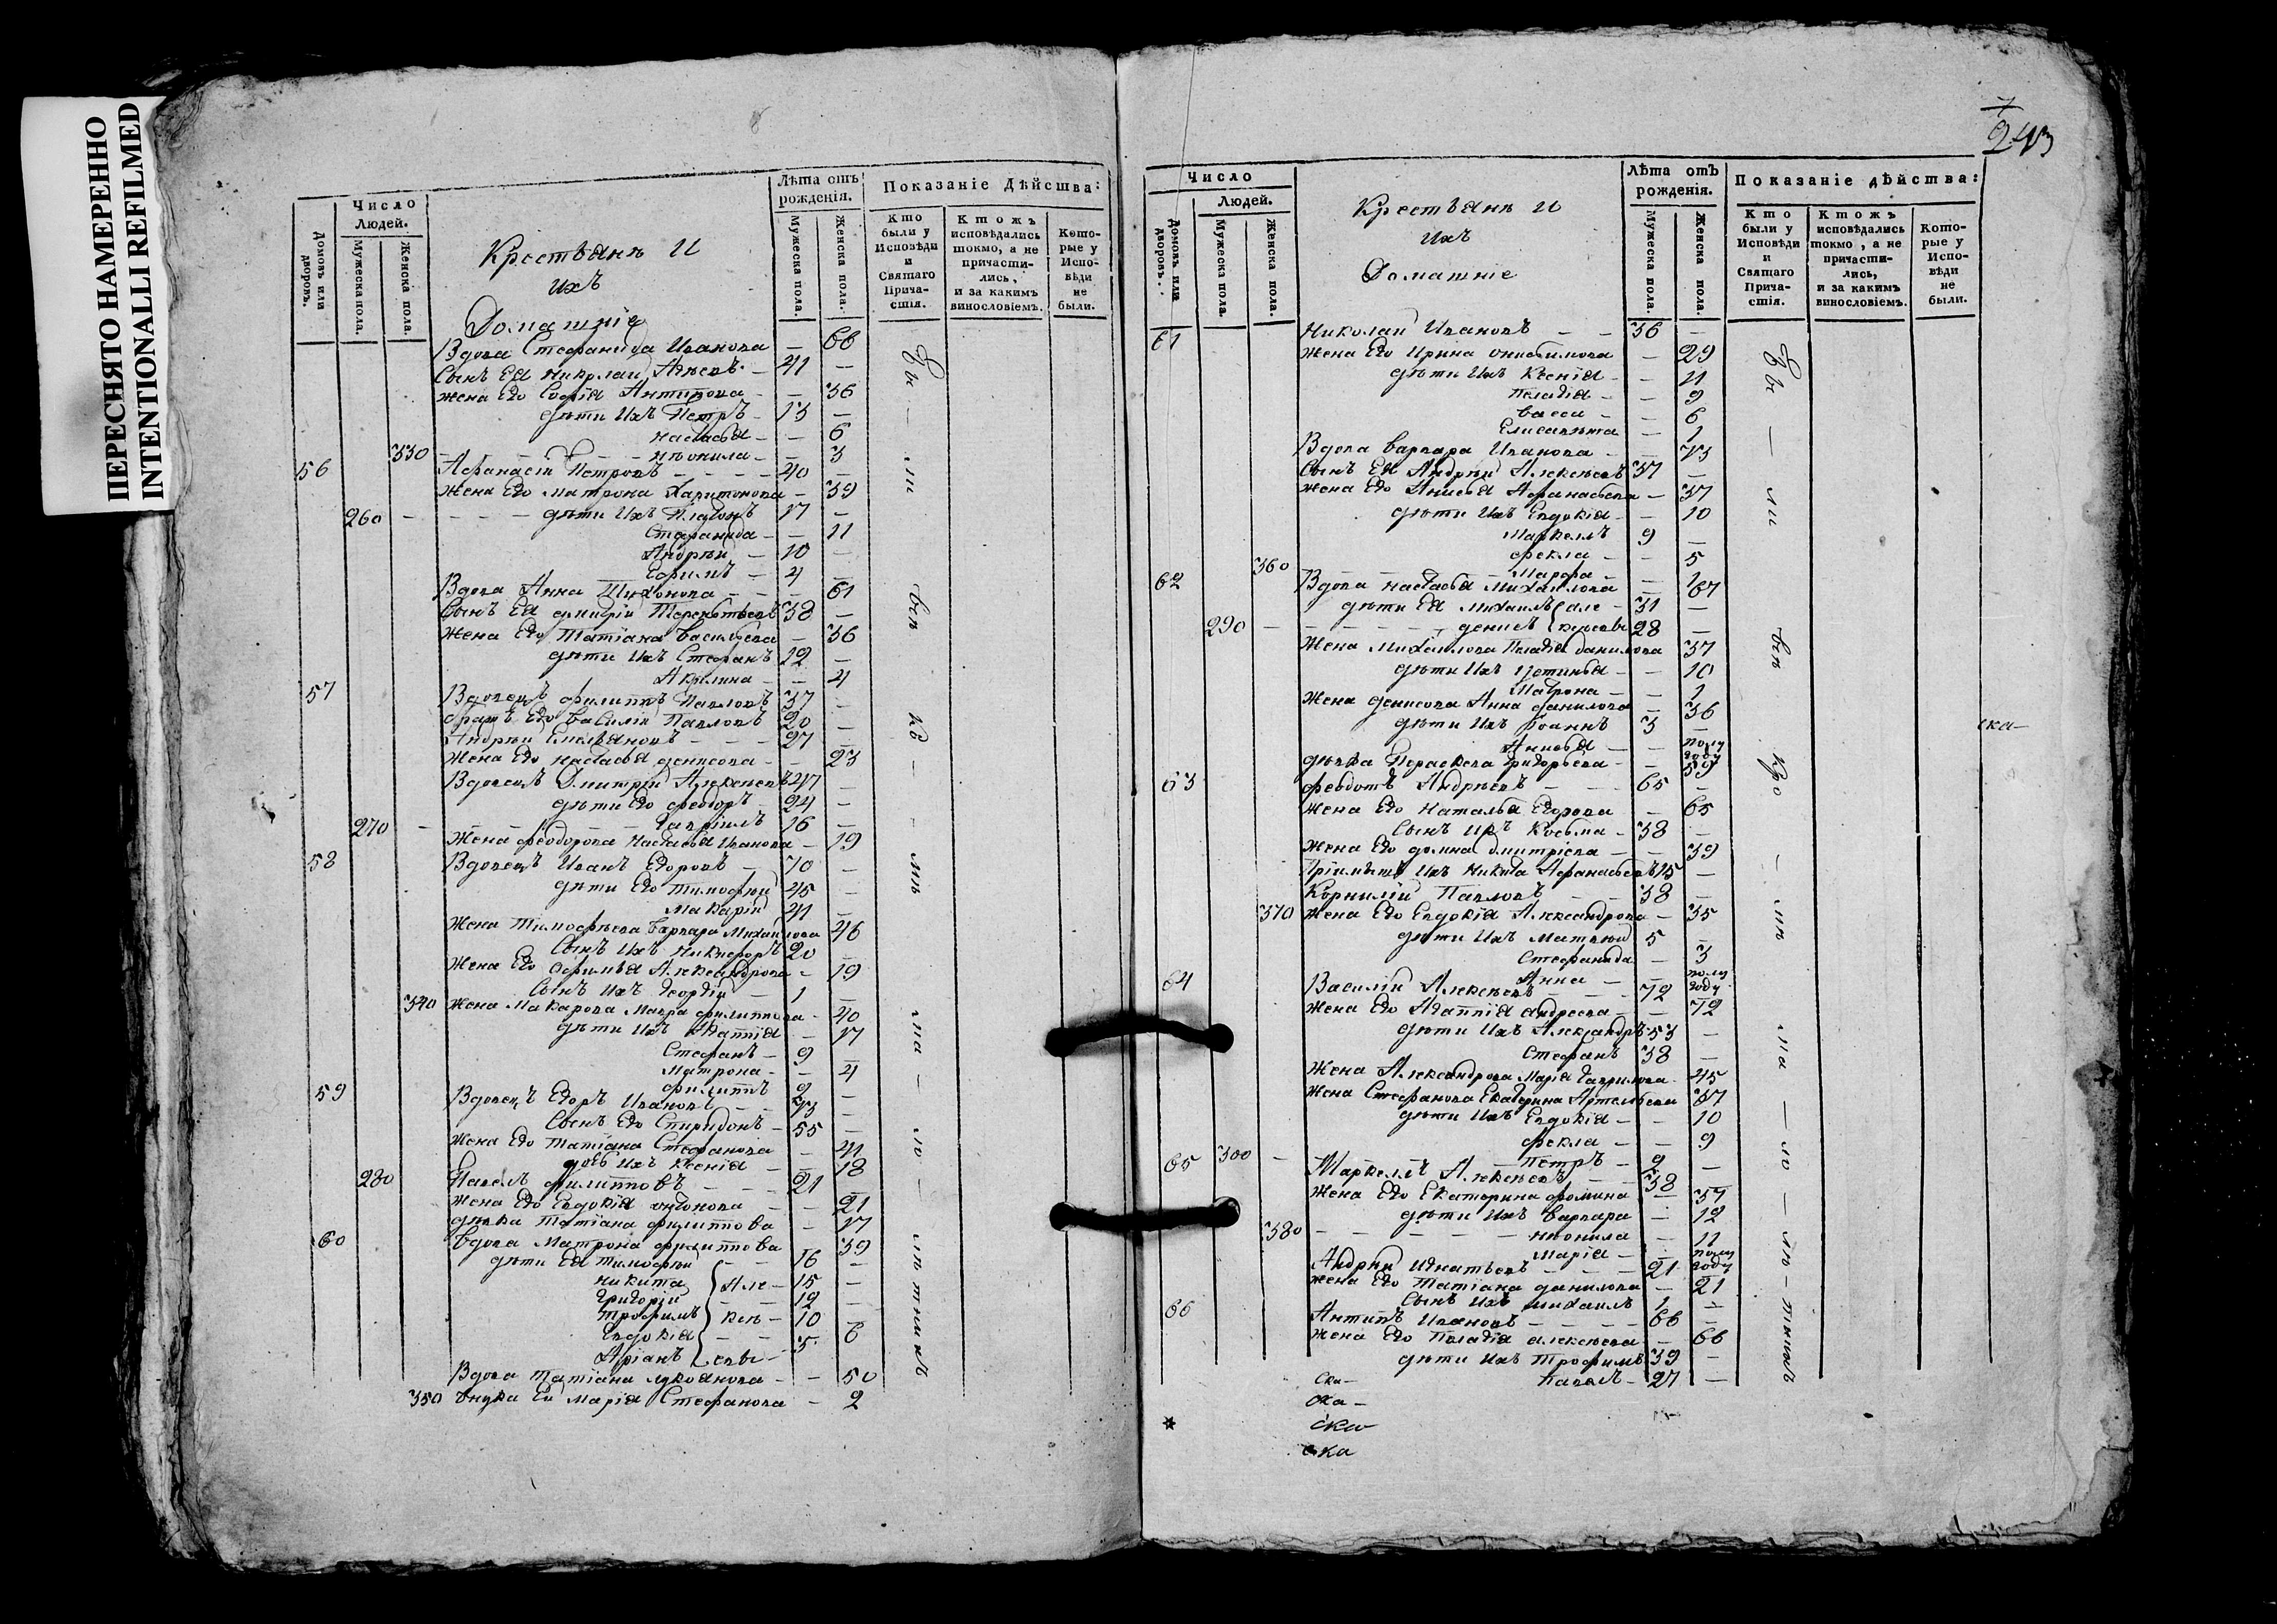 ПЕРЕСНЯТО НАМЕРЕННО
INTENTIONALLI REFILMED
8
Число
Людей.
Домовъ или дворовъ.
Мужеска пола.
Женска пола.
Крестьянѣ И
ихъ
Домашніе
Лѣта отъ рожденія.
Мужеска пола.
Женска пола.
Показаніе Дѣйства:
Кто были у Исповѣди и Святаго Прича-стія.
Ктожъ исповѣдались токмо, а не причасти-лись, и за какимъ винословіемъ.
Кото-рые у Испо-вѣди не были.
Вдова Стефанида Иванова — 66
Сынъ Ея Николай Алѣевъ — 41 —
Жена Его Софія Антипова — — 36
дѣти Ихъ Петръ — 13 —
Настасья — — 6
330 Неонила — — 3
56 Афанасій Петровъ — 40 —
Жена Его Матрона Харитонова — 39
260 дѣти Ихъ Платонъ 17 —
Стефанида — — 11
Андрѣй — 10 —
Ефимъ — 4 —
Вдова Анна Тихонова — — 61
Сынъ Ея Димитрій Терентьевъ 38 —
Жена Его Татіана Васильева — 36
дѣти Ихъ Стефанъ 12 —
Акилина — — 4
57 Вдовецъ Филиппъ Павловъ 37 —
братъ Его Василій Павловъ 20 —
Андрѣй Емельяновъ — 27 —
Жена Его Настасья Денисова — — 23
Вдовецъ Дмитрій Алексѣевъ 47 —
дѣти Его Феодоръ — 24 —
270 — Гавріилъ 16 —
Жена Феодорова Настасья Иванова — 19
58 Вдовецъ Иванъ Егоровъ — 70 —
дѣти Его Тимофѣй 45 —
Макарій 41 —
Жена Тимофѣева Варвара Михайлова 46
Сынъ Ихъ Никифоръ 20 —
Жена Его Ефимья Александрова — 19
Сынъ Ихъ Георгій — 1 —
340 Жена Макарова Мавра Филиппова — 40
дѣти Ихъ Агапія — 17
Стефанъ — 9 —
Матрона — — 4
Филиппъ 2 —
59 Вдовецъ Егоръ Ивановъ — 73 —
Сынъ Его Спиридонъ — 55 —
Жена Его Татіана Стефанова — 41
дочь Ихъ Ксенія — — 18
280 Павелъ Филипповъ — 21 —
Жена Его Евдокія — — 21
дѣвка Татіана Филиппова — 17
60 Вдова Матрона Филиппова 39
дѣти Ея Тимофѣй — 16 —
Никита Але — 15 —
Григорій — 12 —
Трофимъ ксѣ — 10 —
Евдокія — — 6
Аріанъ евы — 5
Вдова Татіана Лукоянова — — 50
350 Внука Ея Марія Стефанова — 2
Вы — ли вѣ ко — мѣ ма — ю лѣтникъ
243
Число
Людей.
Домовъ или дворовъ.
Мужеска пола.
Женска пола.
Крестьянѣ И
Ихъ
Домашніе
Лѣта отъ рожденія.
Мужеска пола.
Женска пола.
Показаніе дѣйства:
Кто были у Исповѣди и Святаго Прича-стія.
Ктожъ исповѣдались токмо, а не причасти-лись, и за какимъ винословіемъ.
Кото-рые у Испо-вѣди не были.
61 Николай Ивановъ — — 36 —
Жена Его Ирина Онисимова — 29
дѣти Ихъ Ксенія — — 11
Пелагія — — 9
Васса — — 6
Елисавѣта — 1
Вдова Варвара Иванова — — 73
Сынъ Ея Андрѣй Алексѣевъ 37 —
Жена Его Анисья Афанасьева — 37
дѣти Ихъ Евдокія — — 10
Маркеллъ 9 —
Фекла — — 5
360 Марфа — — 1
62 Вдова Настасья Михайлова — 67
дѣти Ея Михаилъ Але — 31 —
290 Денисъ ксѣевы 28 —
Жена Михайлова Пелагія Данилова 37
дѣти Ихъ Устинья — — 10
Матрона — — 1
Жена Денисова Анна Данилова — 36
дѣти Ихъ Іоаннъ 3 —
Анисья — — полугоду
дѣвка Перасковья Григорьева — — 59
63 Феодотъ Андрѣевъ — 65 —
Жена Его Наталья Егорова — 65
Сынъ Ихъ Косьма — 38 —
Жена Его Домна Дмитріева — — 39
Пріимышъ Ихъ Никита Афанасьевъ 15 —
Корнилій Павловъ — 38 —
370 Жена Его Евдокія Александрова — 35
дѣти Ихъ Матвѣй 5 —
Стефанида — 3
Анна — — полугоду
64 Василій Алексѣевъ — 72 —
Жена Его Агапія Андреева — 72
дѣти Ихъ Александръ 53 —
Стефанъ 38 —
Жена Александрова Марія Гаврилова — 45
Жена Стефанова Екатерина Артемьева 37
дѣти Ихъ Евдокія — — 10
Фекла — — 9
300 — Петръ — 2 —
65 Маркеллъ Алексѣевъ — 38 —
Жена Его Екатерина Фомина — 37
дѣти Ихъ Варвара — 12
380 Неонила — 11
Марія — — полугоду
Андрѣй Игнатьевъ — 21 —
Жена Его Татіана Данилова — 21
Сынъ Ихъ Михаилъ 1 —
66 Антипъ Ивановъ — 66 —
Жена Его Пелагія Алексѣева — 66
дѣти Ихъ Трофимъ 39 —
Павелъ — 27 —
Вы — ли вѣ Кро — мѣ ма — ю — лѣ — тникъ
ска —
Ска —
ска —
ска
ска